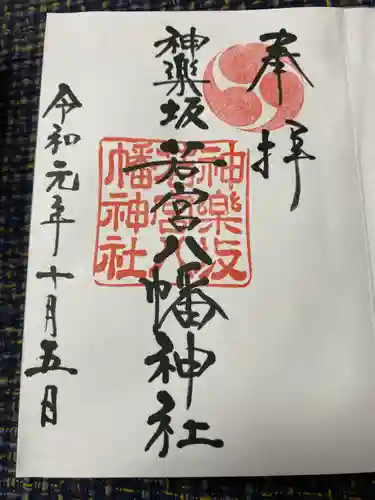 奉拝
神楽坂若宮八幡神社
神楽坂
若宮八
幡神社
令和元年十月五日